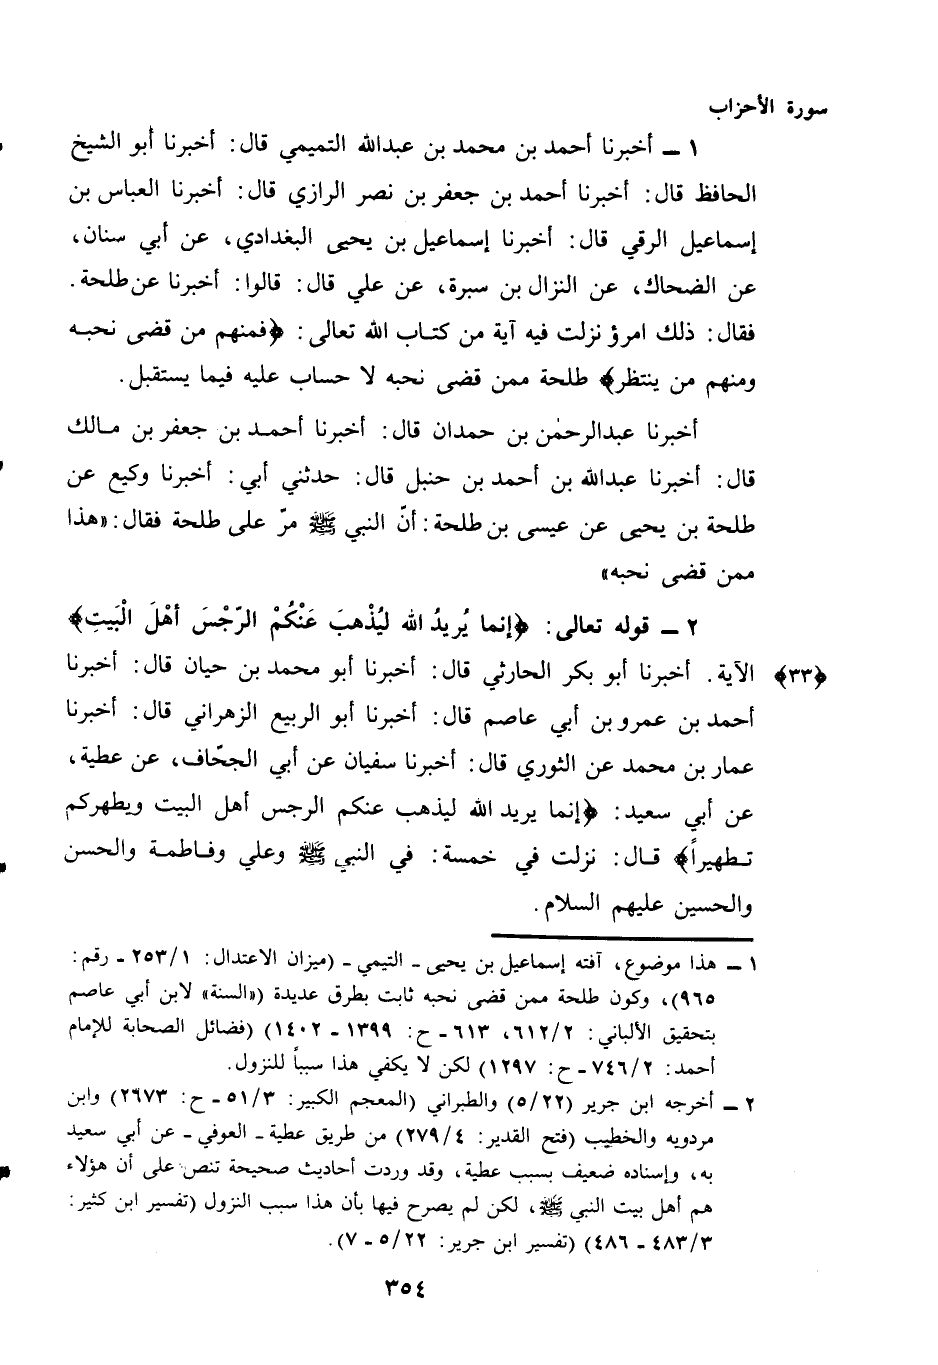 سورة الأحزاب
١ ـ أخبرنا أحمد بن محمد بن عبدالله التميمي قال: أخبرنا أبو الشيخ
الحافظ قال: أخبرنا أحمد بن جعفر بن نصر الرازي قال: أخبرنا العباس بن
إسماعيل الرقي قال: أخبرنا إسماعيل بن يحيى البغدادي، عن أبي سنان،
عن الضحاك، عن النزال بن سبرة، عن علي قال: قالوا: أخبرنا عن طلحة.
فقال: ذلك امرؤ نزلت فيه آية من كتـاب الله تعالى: ﴿فمنهم من قضى نحبـه
ومنهم من ينتظر﴾ طلحة ممن قضى نحبه لا حساب عليه فيما يستقبل.
أخبرنا عبدالرحمٰن بن حمدان قال: أخبرنا أحمـد بن جعفر بن مـالك
قال: أخبرنا عبدالله بن أحمد بن حنبل قال: حدثني أبي: أخبرنا وكيع عن
طلحة بن يحيى عن عيسى بن طلحة: أنّ النبي ﷺ مرّ على طلحة فقال: «هذا
ممن قضى نحبه»
٢ ـ قوله تعالى: ﴿إنما يُريدُ الله ليُذْهبَ عَنْكُمْ الرّجْسَ أهْلَ الْبَيتِ﴾
﴿٣٣﴾ الآية. أخبرنا أبو بكر الحارثي قال: أخبرنا أبو محمد بن حيان قال: أخبرنا
أحمد بن عمرو بن أبي عاصم قال: أخبرنا أبو الربيع الزهراني قال: أخبرنا
عمار بن محمد عن الثوري قال: أخبرنا سفيان عن أبي الجحّاف، عن عطية،
عن أبي سعيد: ﴿إنما يريد الله ليذهب عنكم الرجس أهل البيت ويطهركم
تـطهيراً﴾ قـال: نزلت في خمسة: في النبي ﷺ وعلي وفـاطمـة والحسن
والحسين عليهم السلام.
١ ـ هذا موضوع، آفته إسماعيل بن يحيى ـ التيمي ـ (ميزان الاعتدال: ٢٥٣/١ ـ رقم:
٩٦٥)، وكون طلحة ممن قضى نحبه ثابت بطرق عديدة («السنة» لابن أبي عاصم
بتحقيق الألباني: ٦١٢/٢، ٦١٣ ـ ح: ١٣٩٩ ـ ١٤٠٢) (فضائل الصحابة للإمام
أحمد: ٧٤٦/٢ ـ ح: ١٢٩٧) لكن لا يكفي هذا سبباً للنزول.
٢ ـ أخرجه ابن جرير (٥/٢٢) والطبراني (المعجم الكبير: ٥١/٣ ـ ح: ٢٦٧٣) وابن
مردويه والخطيب (فتح القدير: ٢٧٩/٤) من طريق عطية ـ العوفي ـ عن أبي سعيد
به، وإسناده ضعيف بسبب عطية، وقد وردت أحاديث صحيحة تنص على أن هؤلاء
هم أهل بيت النبي ﷺ، لكن لم يصرح فيها بأن هذا سبب النزول (تفسير ابن كثير:
٤٨٣/٣ ـ ٤٨٦) (تفسير ابن جرير: ٥/٢٢ ـ ٧).
٣٥٤